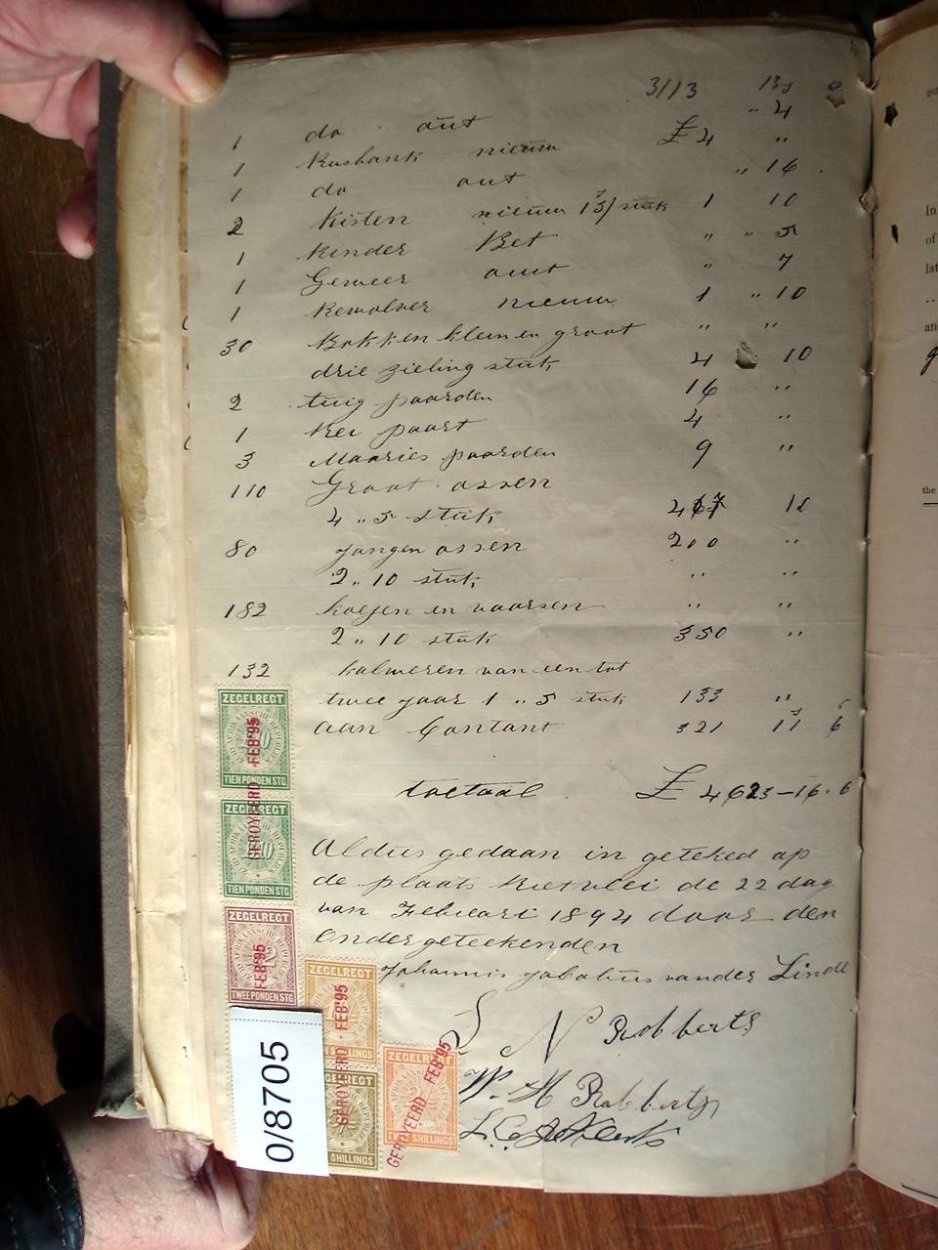 3113 13 0
1 do out " 4
1 Rusbank nieuw £ 4 "
1 do out " 16
2 Kisten nieuw 15/ stuk 1 10
1 Kinder Bet " " 5
1 Geweer out " 7
1 Rewolwer nieuw 1 " 10
30 Bokken klein en groot " "
drie zieling stuk 4 10
2 tuig paarden 16 "
1 Rei paart 4 "
3 Maaries paarden 9 "
110 Groot ossen
4 " 5 stuk 467 10
80 Jongen ossen 200 "
2 " 10 stuk " "
182 koejen en vaarsen " "
2 " 10 stuk 350 "
132 kalweren van een tot
twee jaar 1 " 5 stuk 133 "
aan Contant 321 11 6
toetaal £ 4623-16.6
Aldus gedaan in geteked op
de plaats Rietvlei de 22 dag
van Febuari 1894 door den
Ondergeteekenden
Johannis van der Linde
S N Robberts
W. H Robberts
L. C.
ZEGELREGT
TIEN PONDEN STG
GEROYEERD FEB'95
ZEGELREGT
TIEN PONDEN STG
ZEGELREGT
TWEE PONDEN STG
FEB'95
ZEGELREGT
SHILLINGS
GEROYEERD FEB'95
SHILLINGS
ZEGELREGT
SHILLINGS
GEROYEERD FEB'95
0/8705
In
of
lat
an
the